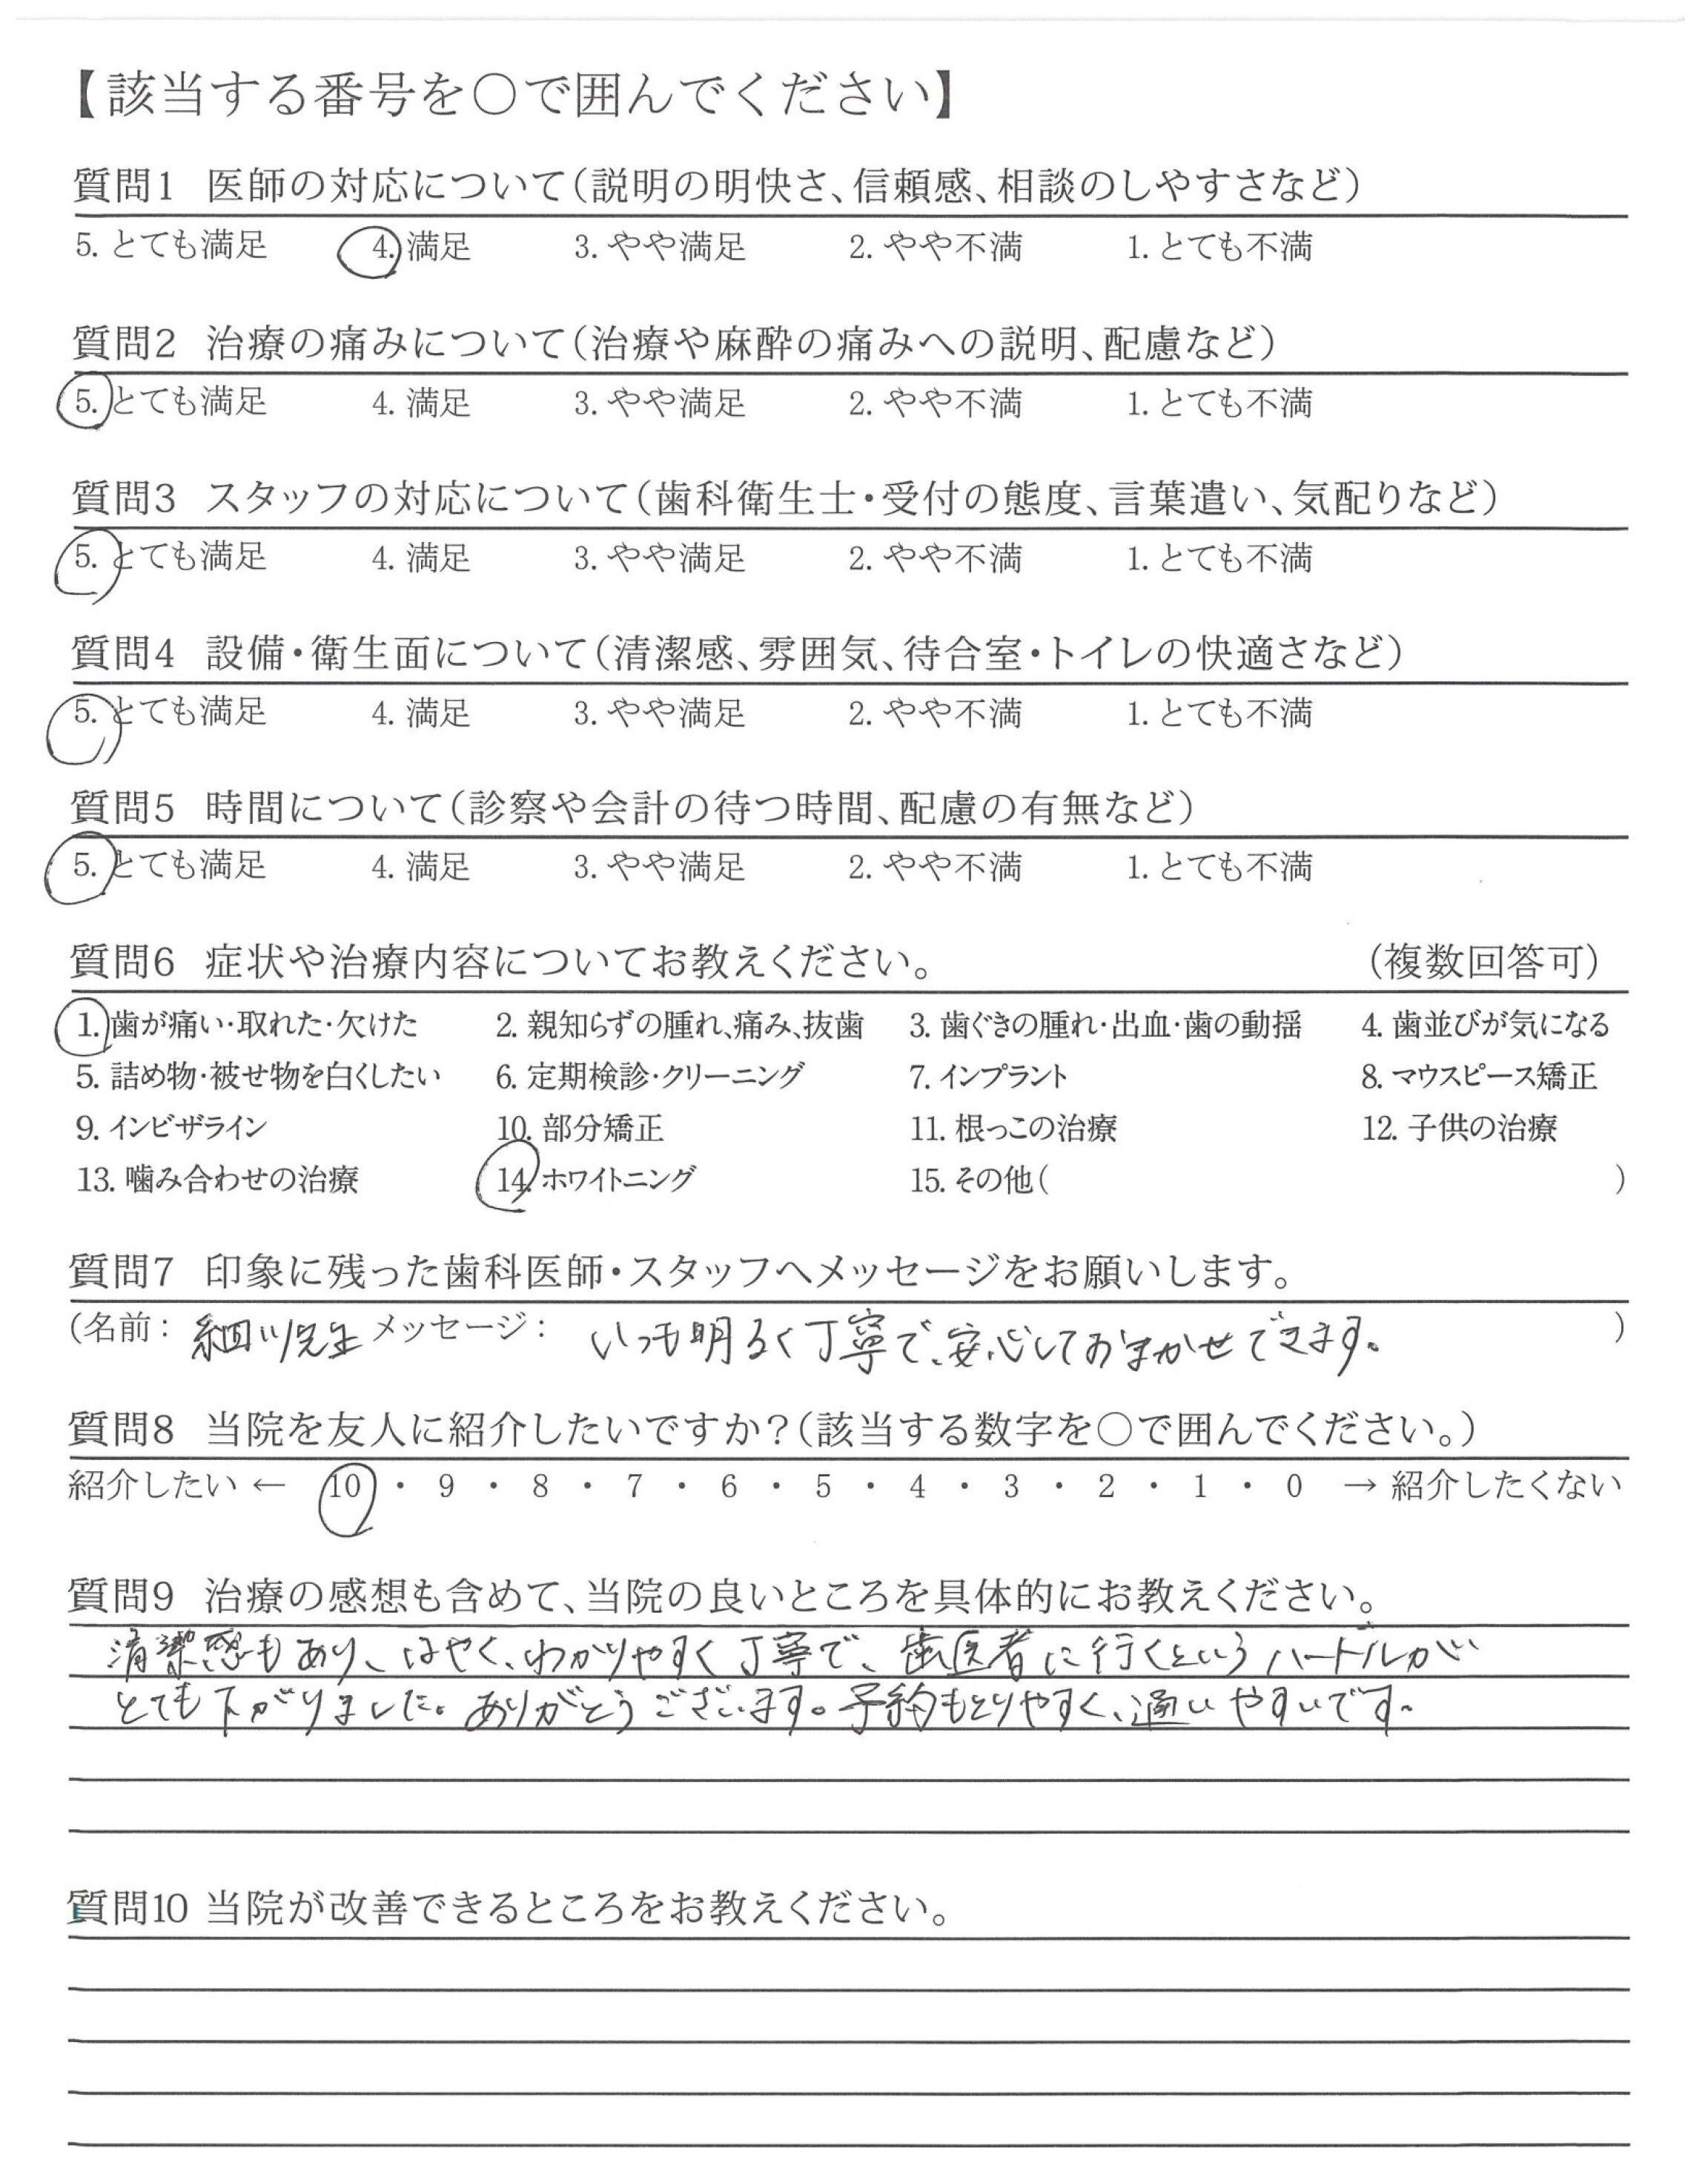 【該当する番号を○で囲んでください】
質問1 医師の対応について(説明の明快さ、信頼感、相談のしやすさなど)
5. とても満足 4. 満足 3. やや満足 2. やや不満 1. とても不満
質問2 治療の痛みについて(治療や麻酔の痛みへの説明、配慮など)
5. とても満足 4. 満足 3. やや満足 2. やや不満 1. とても不満
質問3 スタッフの対応について(歯科衛生士・受付の態度、言葉遣い、気配りなど)
5. とても満足 4. 満足 3. やや満足 2. やや不満 1. とても不満
質問4 設備・衛生面について(清潔感、雰囲気、待合室・トイレの快適さなど)
5. とても満足 4. 満足 3. やや満足 2. やや不満 1. とても不満
質問5 時間について(診察や会計の待つ時間、配慮の有無など)
5. とても満足 4. 満足 3. やや満足 2. やや不満 1. とても不満
質問6 症状や治療内容についてお教えください。 (複数回答可)
1. 歯が痛い・取れた・欠けた 2. 親知らずの腫れ、痛み、抜歯 3. 歯ぐきの腫れ・出血・歯の動揺 4. 歯並びが気になる
5. 詰め物・被せ物を白くしたい 6. 定期検診・クリーニング 7. インプラント 8. マウスピース矯正
9. インビザライン 10. 部分矯正 11. 根っこの治療 12. 子供の治療
13. 噛み合わせの治療 14. ホワイトニング 15. その他( )
質問7 印象に残った歯科医師・スタッフへメッセージをお願いします。
(名前: 細川先生 メッセージ: いつも明るく丁寧で、安心しておまかせできます。 )
質問8 当院を友人に紹介したいですか?(該当する数字を○で囲んでください。)
紹介したい ← 10 ・ 9 ・ 8 ・ 7 ・ 6 ・ 5 ・ 4 ・ 3 ・ 2 ・ 1 ・ 0 → 紹介したくない
質問9 治療の感想も含めて、当院の良いところを具体的にお教えください。
清潔感もあり、はやく、わかりやすく丁寧で、歯医者に行くというハードルが
とても下がりました。ありがとうございます。予約もとりやすく、通いやすいです。
質問10 当院が改善できるところをお教えください。